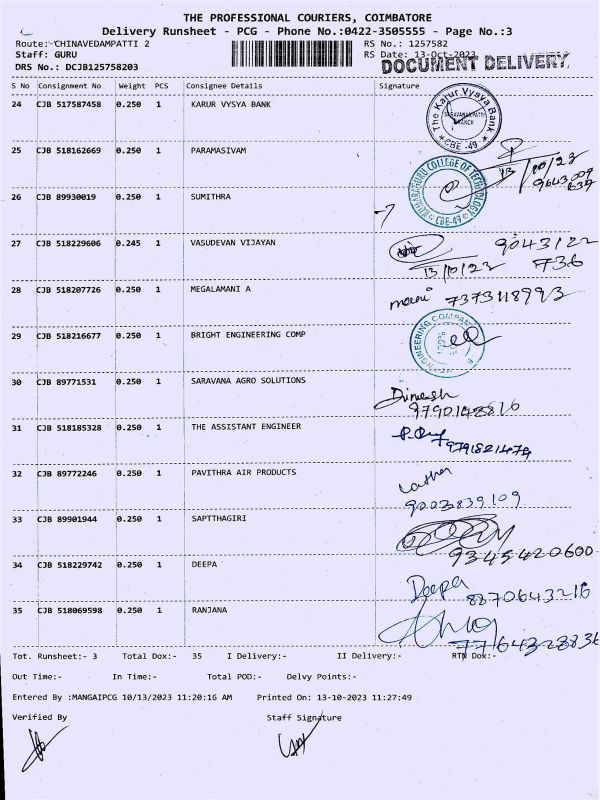 THE PROFESSIONAL COURIERS, COIMBATORE
Delivery Runsheet - PCG - Phone No.:0422-3505555 - Page No.:3
Route: CHINAVEDAMPATTI 2 RS No.: 1257582
Staff: GURU RS Date: 13-Oct-2023
DRS No.: DCJB125758203 DOCUMENT DELIVERY
S No Consignment No Weight PCS Consignee Details Signature
24 CJB 517587458 0.250 1 KARUR VYSYA BANK The Karur Vysya Bank SARAVANAMPATTI BRANCH CBE-49
25 CJB 518162669 0.250 1 PARAMASIVAM 13/10/23
26 CJB 89930019 0.250 1 SUMITHRA KUMARAGURU COLLEGE OF TECHNOLOGY CBE-49
27 CJB 518229606 0.245 1 VASUDEVAN VIJAYAN 9043122
13/10/23 736
28 CJB 518207726 0.250 1 MEGALAMANI A mani 7373118993
29 CJB 518216677 0.250 1 BRIGHT ENGINEERING COMP
30 CJB 89771531 0.250 1 SARAVANA AGRO SOLUTIONS Dinesh
31 CJB 518185328 0.250 1 THE ASSISTANT ENGINEER
9791821479
32 CJB 89772246 0.250 1 PAVITHRA AIR PRODUCTS
9003839109
33 CJB 89901944 0.250 1 SAPTTHAGIRI
9345420600
34 CJB 518229742 0.250 1 DEEPA Deepa 8870643216
35 CJB 518069598 0.250 1 RANJANA
7764328836
Tot. Runsheet:- 3 Total Dox:- 35 I Delivery:- II Delivery:- RTN Dox:-
Out Time:- In Time:- Total POD:- Delvy Points:-
Entered By :MANGAIPCG 10/13/2023 11:20:16 AM Printed On: 13-10-2023 11:27:49
Verified By Staff Signature